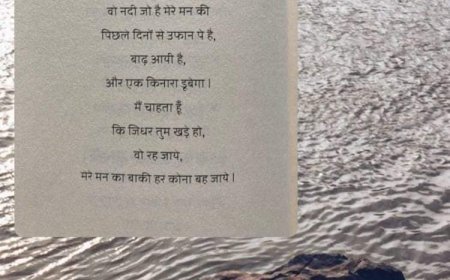 वो नदी जो है मेरे मन की
पिछले दिनों से उफान पे है,
बाढ़ आयी है,
और एक किनारा डूबेगा।
मैं चाहता हूँ
कि जिधर तुम खड़े हो,
वो रह जाये,
मेरे मन का बाकी हर कोना बह जाये।